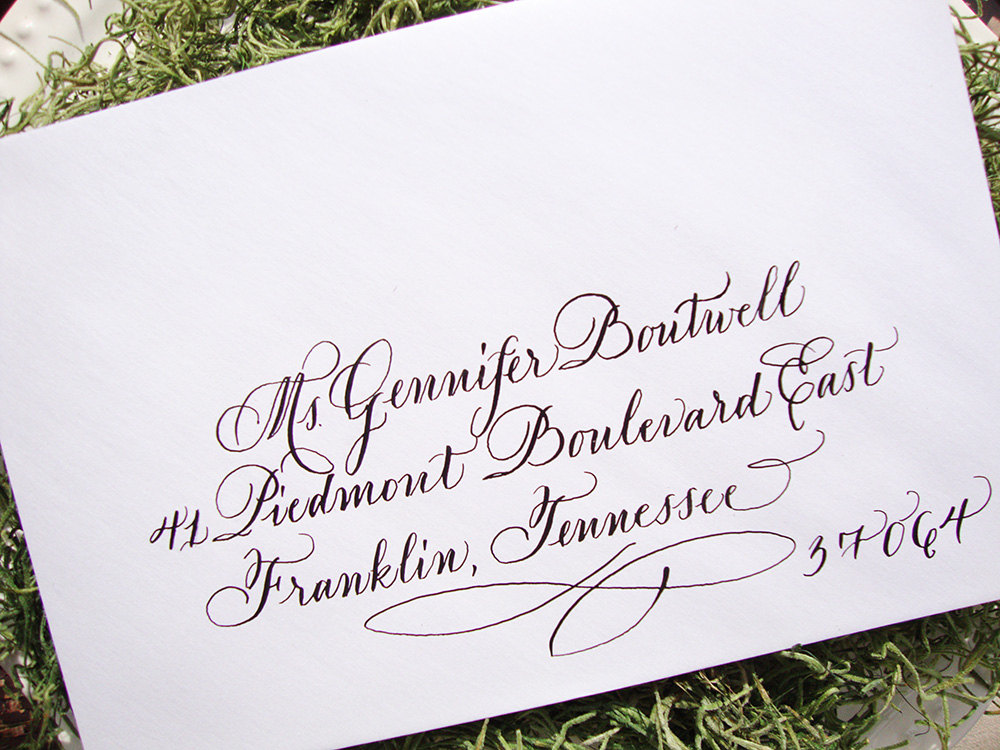 Ms. Gennifer Boutwell
41 Piedmont Boulevard East
Franklin, Tennessee
37064